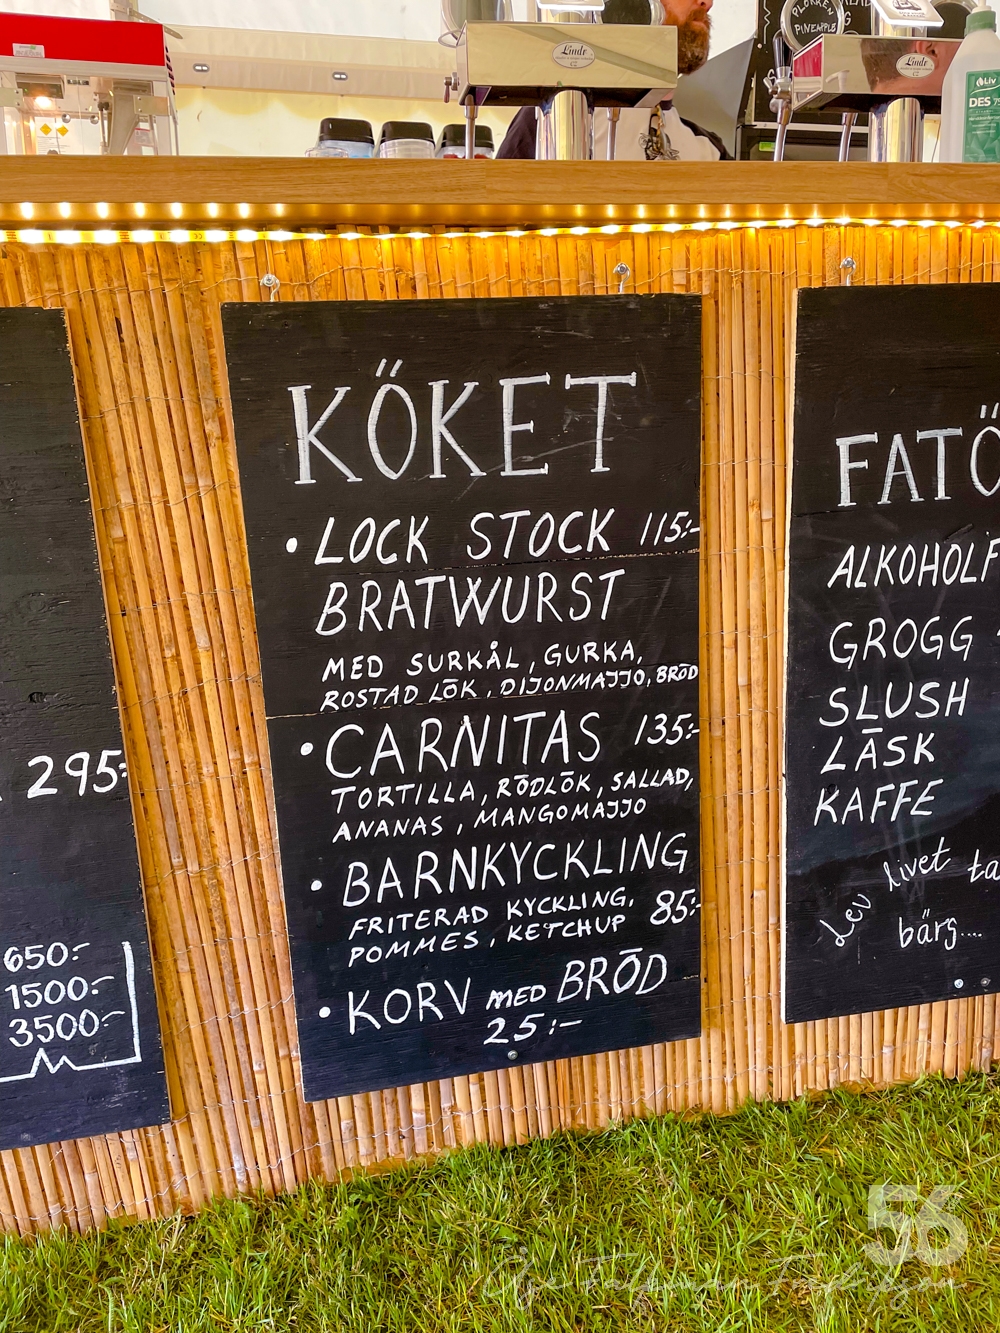 PLOKKEN
PINEAPPLE
Lindr
Lindr
Liv
DES 75
295:-
650:-
1500:-
3500:-
KÖKET
• LOCK STOCK 115:-
BRATWURST
MED SURKÅL, GURKA,
ROSTAD LÖK, DIJONMAJJO, BRÖD
• CARNITAS 135:-
TORTILLA, RÖDLÖK, SALLAD,
ANANAS, MANGOMAJJO
• BARNKYCKLING
FRITERAD KYCKLING, 85:-
POMMES, KETCHUP
• KORV MED BRÖD
25:-
FATÖ
ALKOHOLF
GROGG
SLUSH
LÄSK
KAFFE
Lev livet ta
bärs....
56